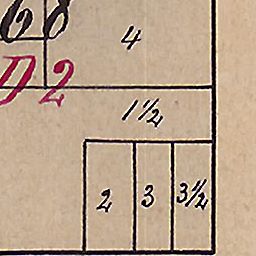 68
4
D2
1½
2 3 3½